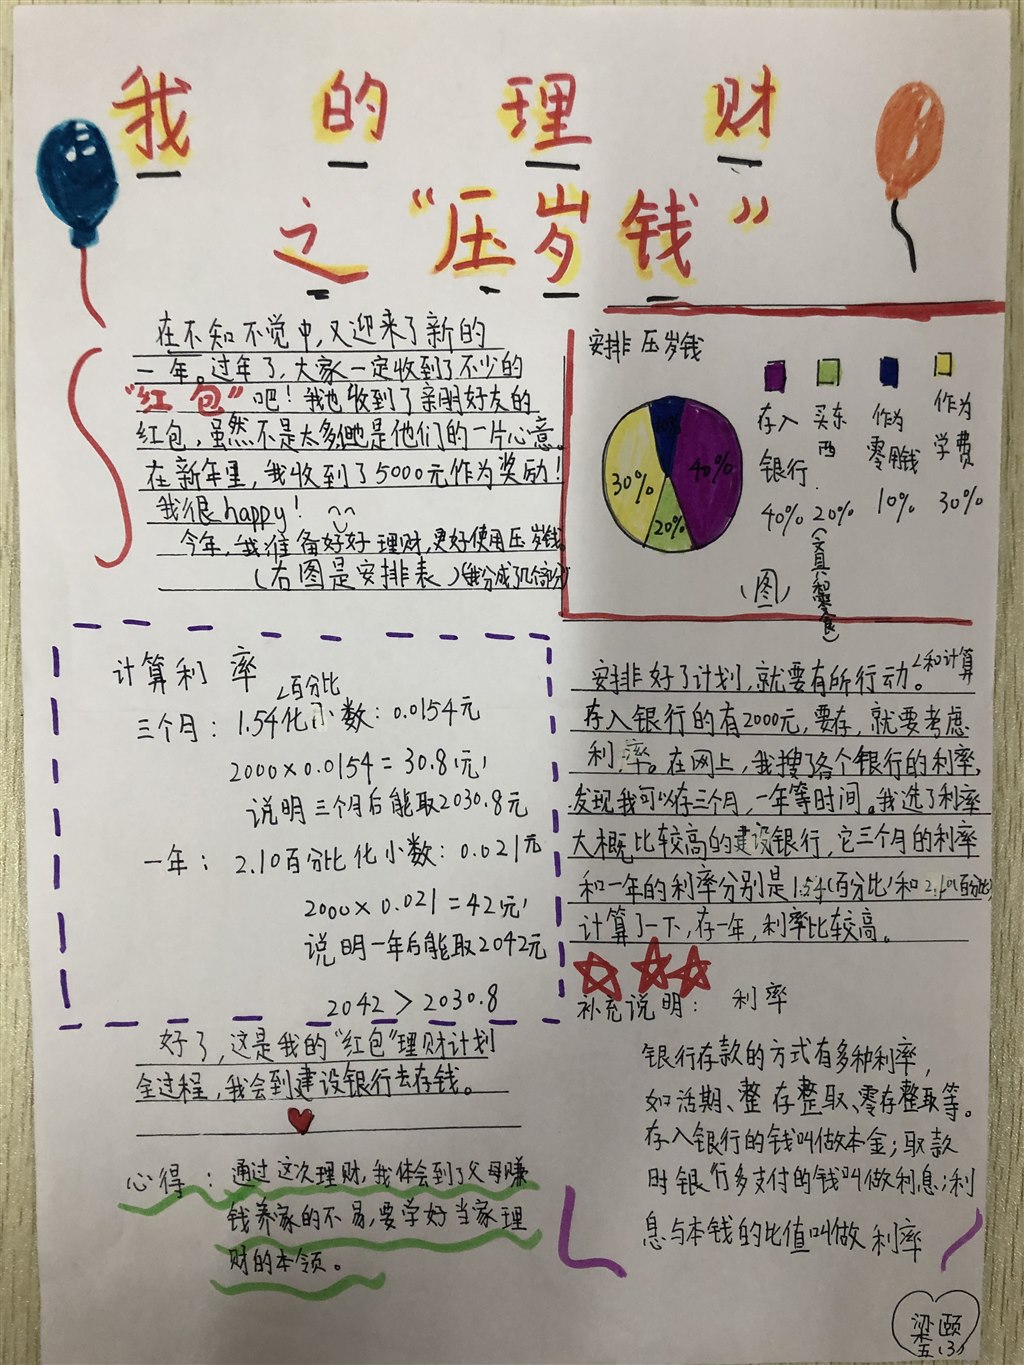 我的理财
之“压岁钱”
在不知不觉中,又迎来了新的
一年。过年了,大家一定收到了不少的
“红包”吧！我也收到了亲朋好友的
红包，虽然不是太多但也是他们的一片心意。
在新年里，我收到了5000元作为奖励！
我很happy！
今年，我准备好好理财,更好使用压岁钱。
（右图是安排表）(我分成了几个部分)
安排压岁钱
40%
20%
30%
10%
存入银行 40%
买东西 20% (文具和零食)
作为零用钱 10%
作为学费 30%
（图）
计算利率
三个月：1.54<百分比化小数：0.0154元
2000×0.0154=30.8(元)
说明三个月后能取2030.8元
一年：2.10百分比化小数：0.021元
2000×0.021=42(元)
说明一年后能取2042元
2042>2030.8
安排好了计划,就要有所行动<和计算。
存入银行的有2000元,要存,就要考虑
利率。在网上，我搜了各个银行的利率,
发现我可以存三个月，一年等时间。我选了利率
大概比较高的建设银行，它三个月的利率
和一年的利率分别是1.54(百分比)和2.10(百分比)
计算了一下,存一年，利率比较高。
好了，这是我的“红包”理财计划
全过程，我会到建设银行去存钱。
心得：通过这次理财,我体会到了父母赚
钱养家的不易,要学好当家理
财的本领。
补充说明：利率
银行存款的方式有多种利率，
如活期、整存整取、零存整取等。
存入银行的钱叫做本金；取款
时银行多支付的钱叫做利息；利
息与本钱的比值叫做利率
梁颐
五(3)